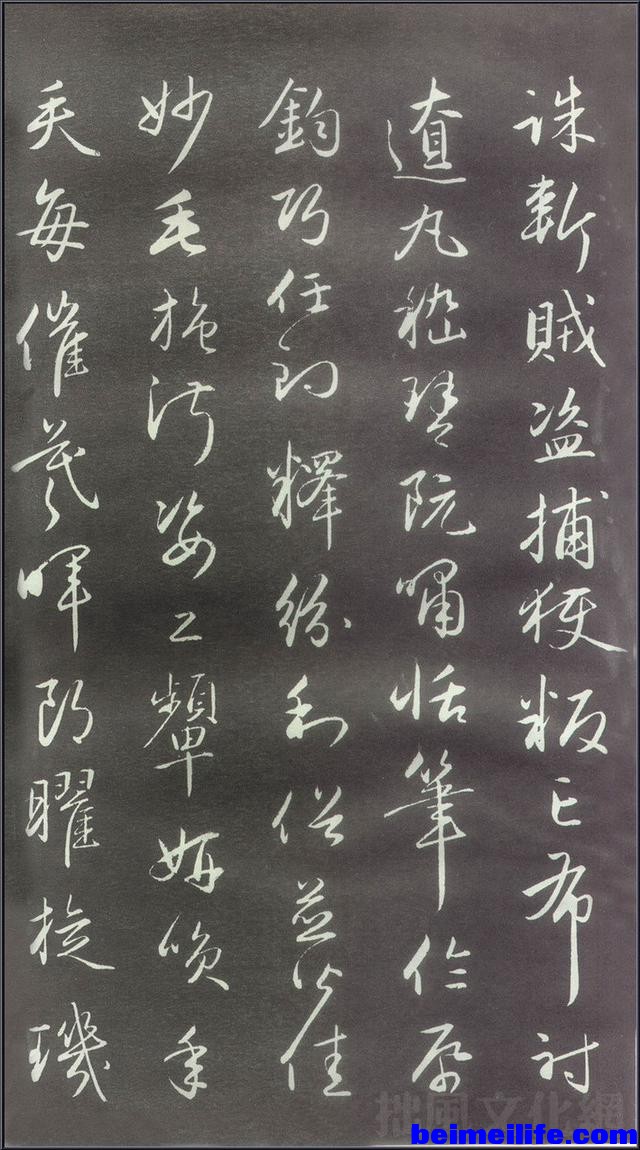 誅斬賊盜捕獲叛亡布射
遼丸嵇琴阮嘯恬筆倫紙
鈞巧任釣釋紛利俗並皆佳
妙毛施淑姿工顰妍咲年
矢每催羲暉朗曜旋璣
拙風文化網
beimeilife.com